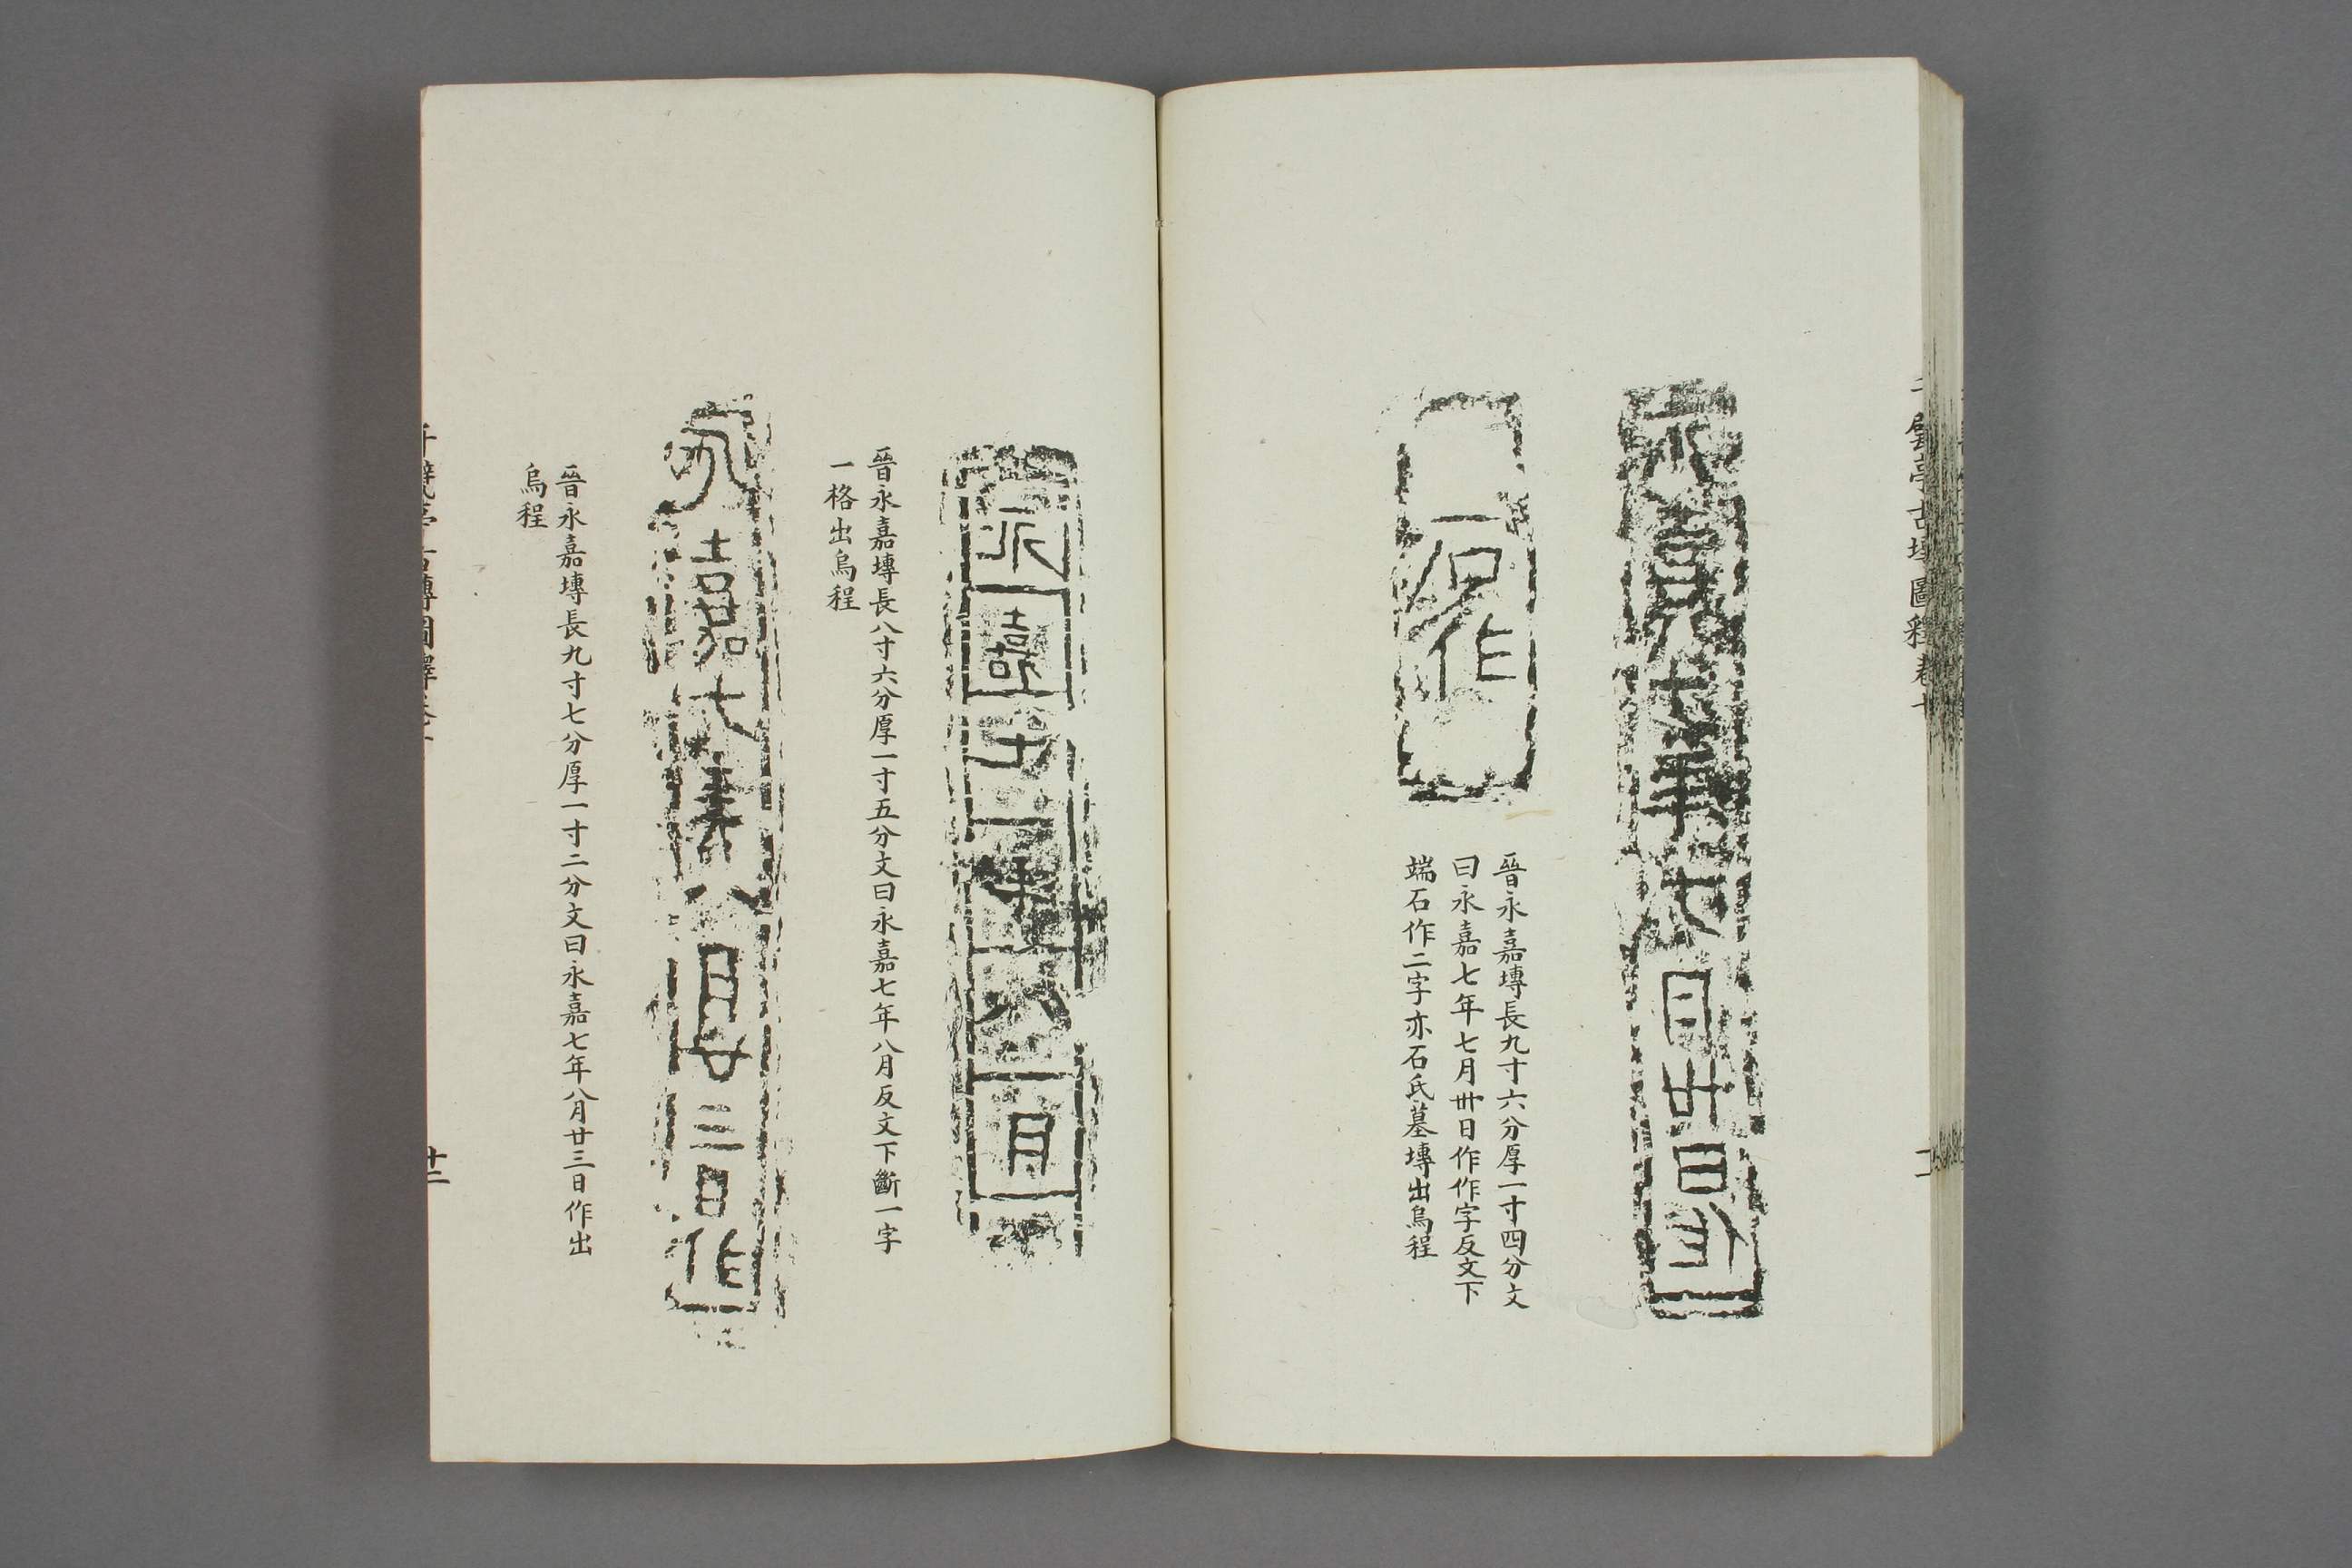 千甓亭古塼圖釋卷十
永嘉七年七月卅日作
石作
晉永嘉塼長九寸六分厚一寸四分文
曰永嘉七年七月卅日作作字反文下
端石作二字亦石氏墓塼出烏程
永嘉七年八月
晉永嘉塼長八寸六分厚一寸五分文曰永嘉七年八月反文下斷一字
一格出烏程
永嘉七年八月廿三日作
晉永嘉塼長九寸七分厚一寸二分文曰永嘉七年八月廿三日作出
烏程
千甓亭古塼圖釋卷十